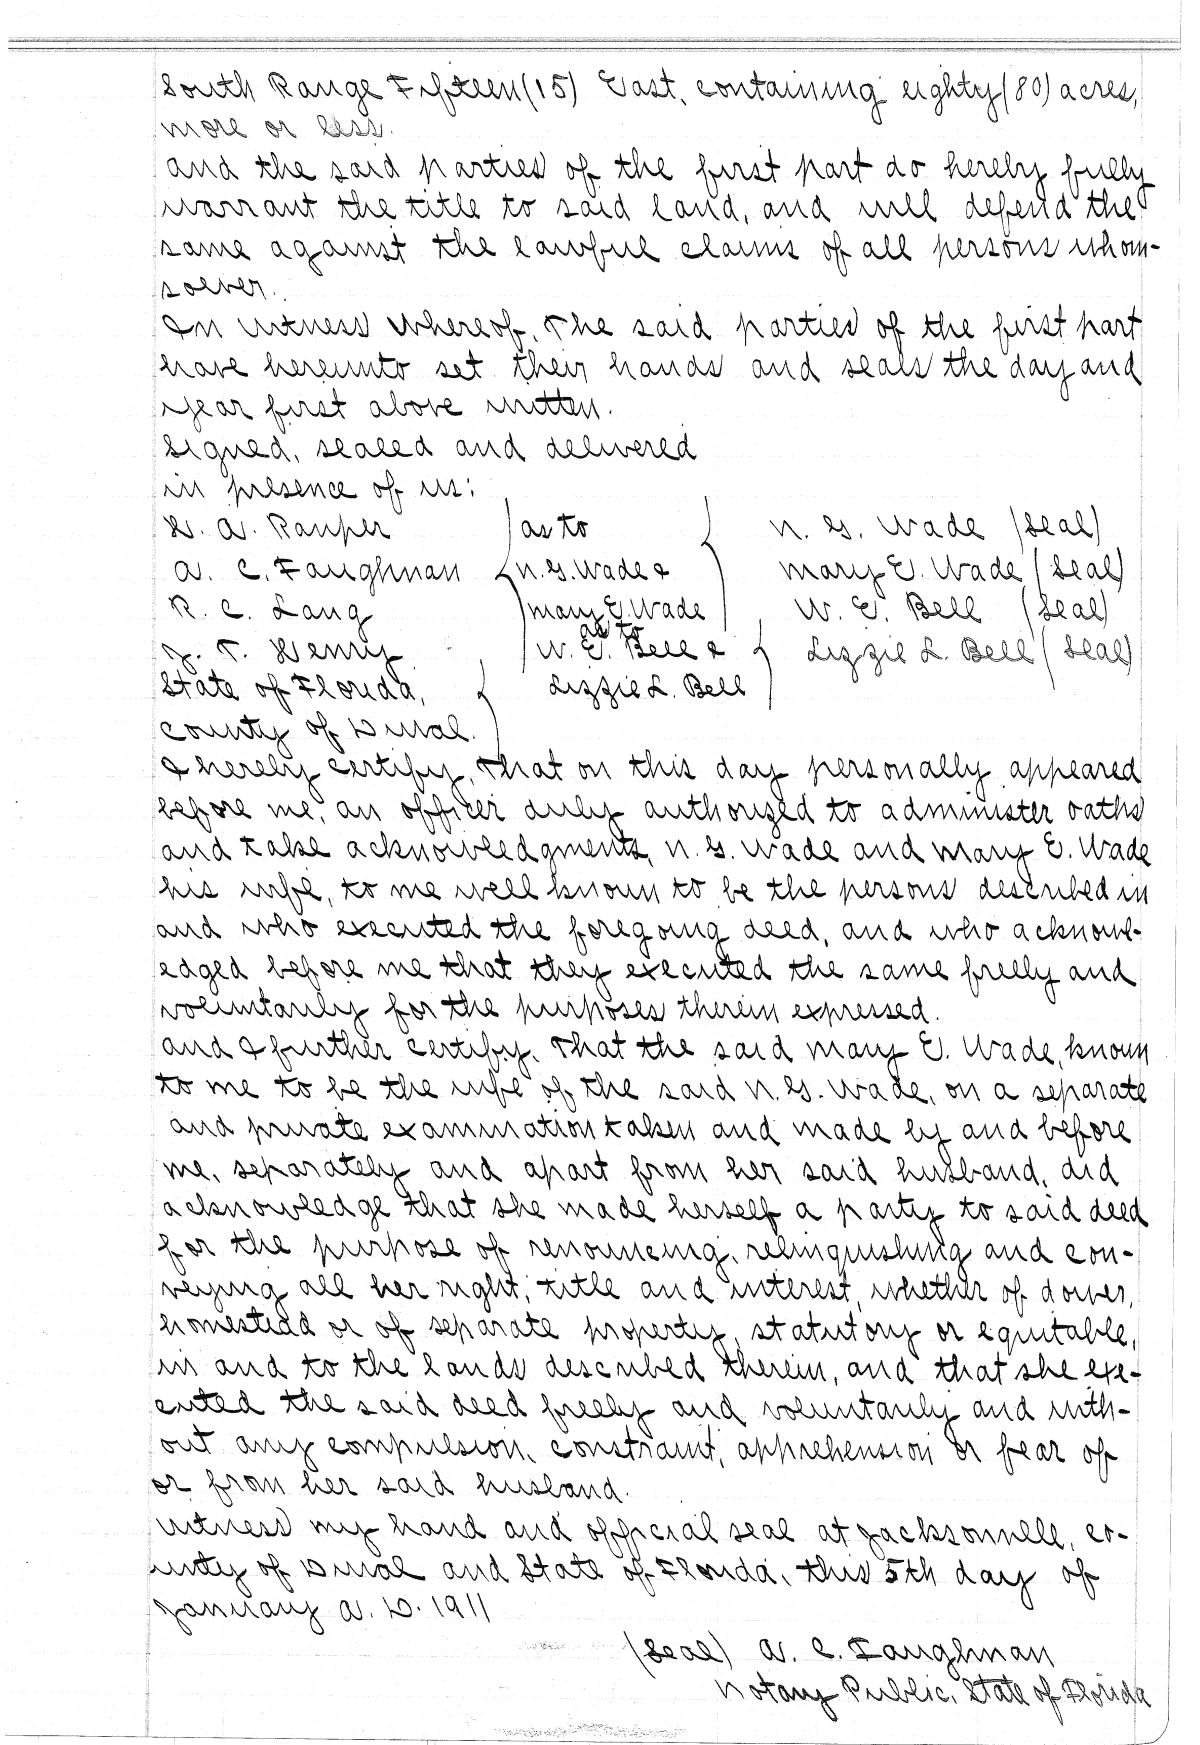 South Range Fifteen (15) East, containing eighty (80) acres,
more or less.
And the said parties of the first part do hereby fully
warrant the title to said land, and will defend the
same against the lawful claims of all persons whom-
soever.
In witness whereof, the said parties of the first part
have hereunto set their hands and seals the day and
year first above written.
Signed, sealed and delivered
in presence of us:
A. C. Faughman as to N. G. Wade (Seal)
N. G. Wade & Mary E. Wade (Seal)
R. C. Lang Mary E. Wade W. E. Bell (Seal)
as to
J. T. Henry W. E. Bell & Lizzie L. Bell (Seal)
State of Florida, Lizzie L. Bell
County of Duval.
I hereby certify, That on this day personally appeared
before me, an officer duly authorized to administer oaths
and take acknowledgments, N. G. Wade and Mary E. Wade
his wife, to me well known to be the persons described in
and who executed the foregoing deed, and who acknowl-
edged before me that they executed the same freely and
voluntarily for the purposes therein expressed.
And I further certify, That the said Mary E. Wade, known
to me to be the wife of the said N. G. Wade, on a separate
and private examination taken and made by and before
me, separately and apart from her said husband, did
acknowledge that she made herself a party to said deed
for the purpose of renouncing, relinquishing and con-
veying all her right, title and interest, whether of dower,
homestead or of separate property, statutory or equitable,
in and to the lands described therein, and that she exe-
cuted the said deed freely and voluntarily and with-
out any compulsion, constraint, apprehension or fear of
or from her said husband.
Witness my hand and official seal at Jacksonville, co-
unty of Duval and State of Florida, this 5th day of
January A. D. 1911
(Seal) A. C. Faughman
Notary Public, State of Florida